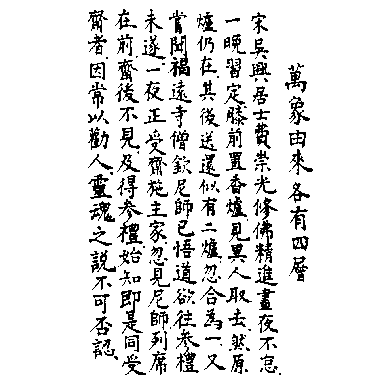 萬象由來各有四層
宋吳興居士費崇光修佛精進晝夜不怠
一晚習定膝前置香爐見異人取去然原
爐仍在其後送還似有二爐忽合為一又
嘗聞福遠寺僧欽尼師已悟道欲往參禮
未遂一夜正受齋施主家忽見尼師列席
在前齋後不見及得參禮始知即是同受
齋者因常以勸人靈魂之說不可否認